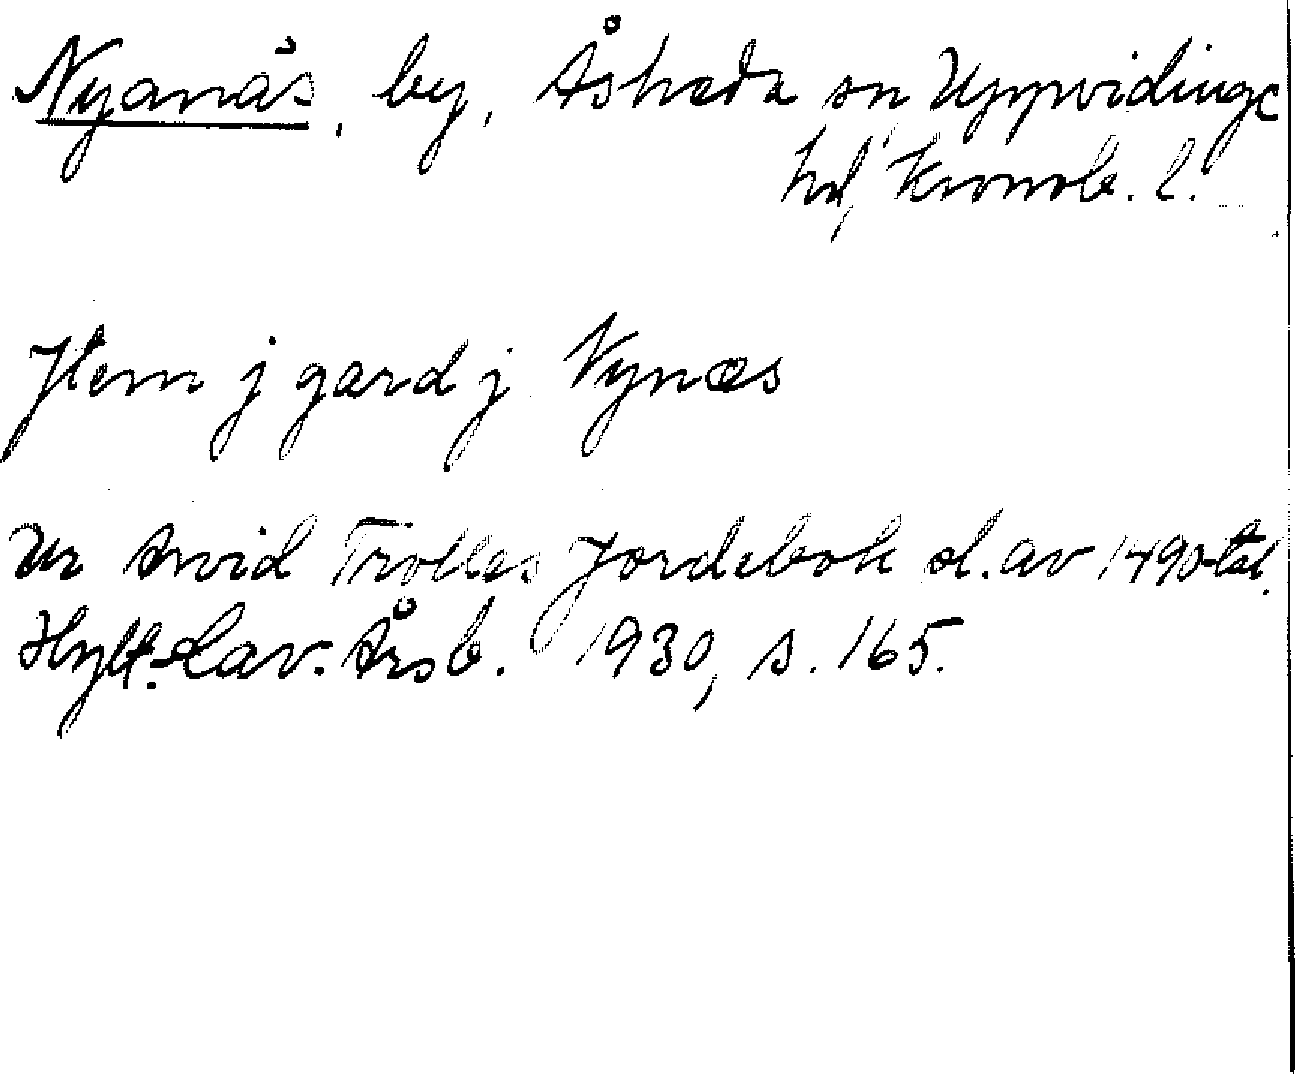 Nyanäs, by, Åsheda sn, Uppvidinge
hd, Kronob. l.
Jtem j gard j Nynæs
Ur Arvid Trolles Jordebok sl. av 1490-tal.
Hylt.-Cav. Årsb. 1930, s. 165.